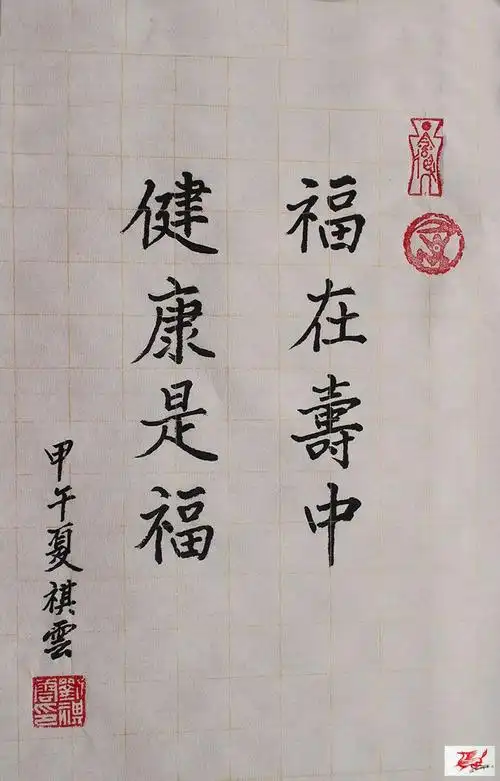 福在壽中
健康是福
甲午夏祺雲